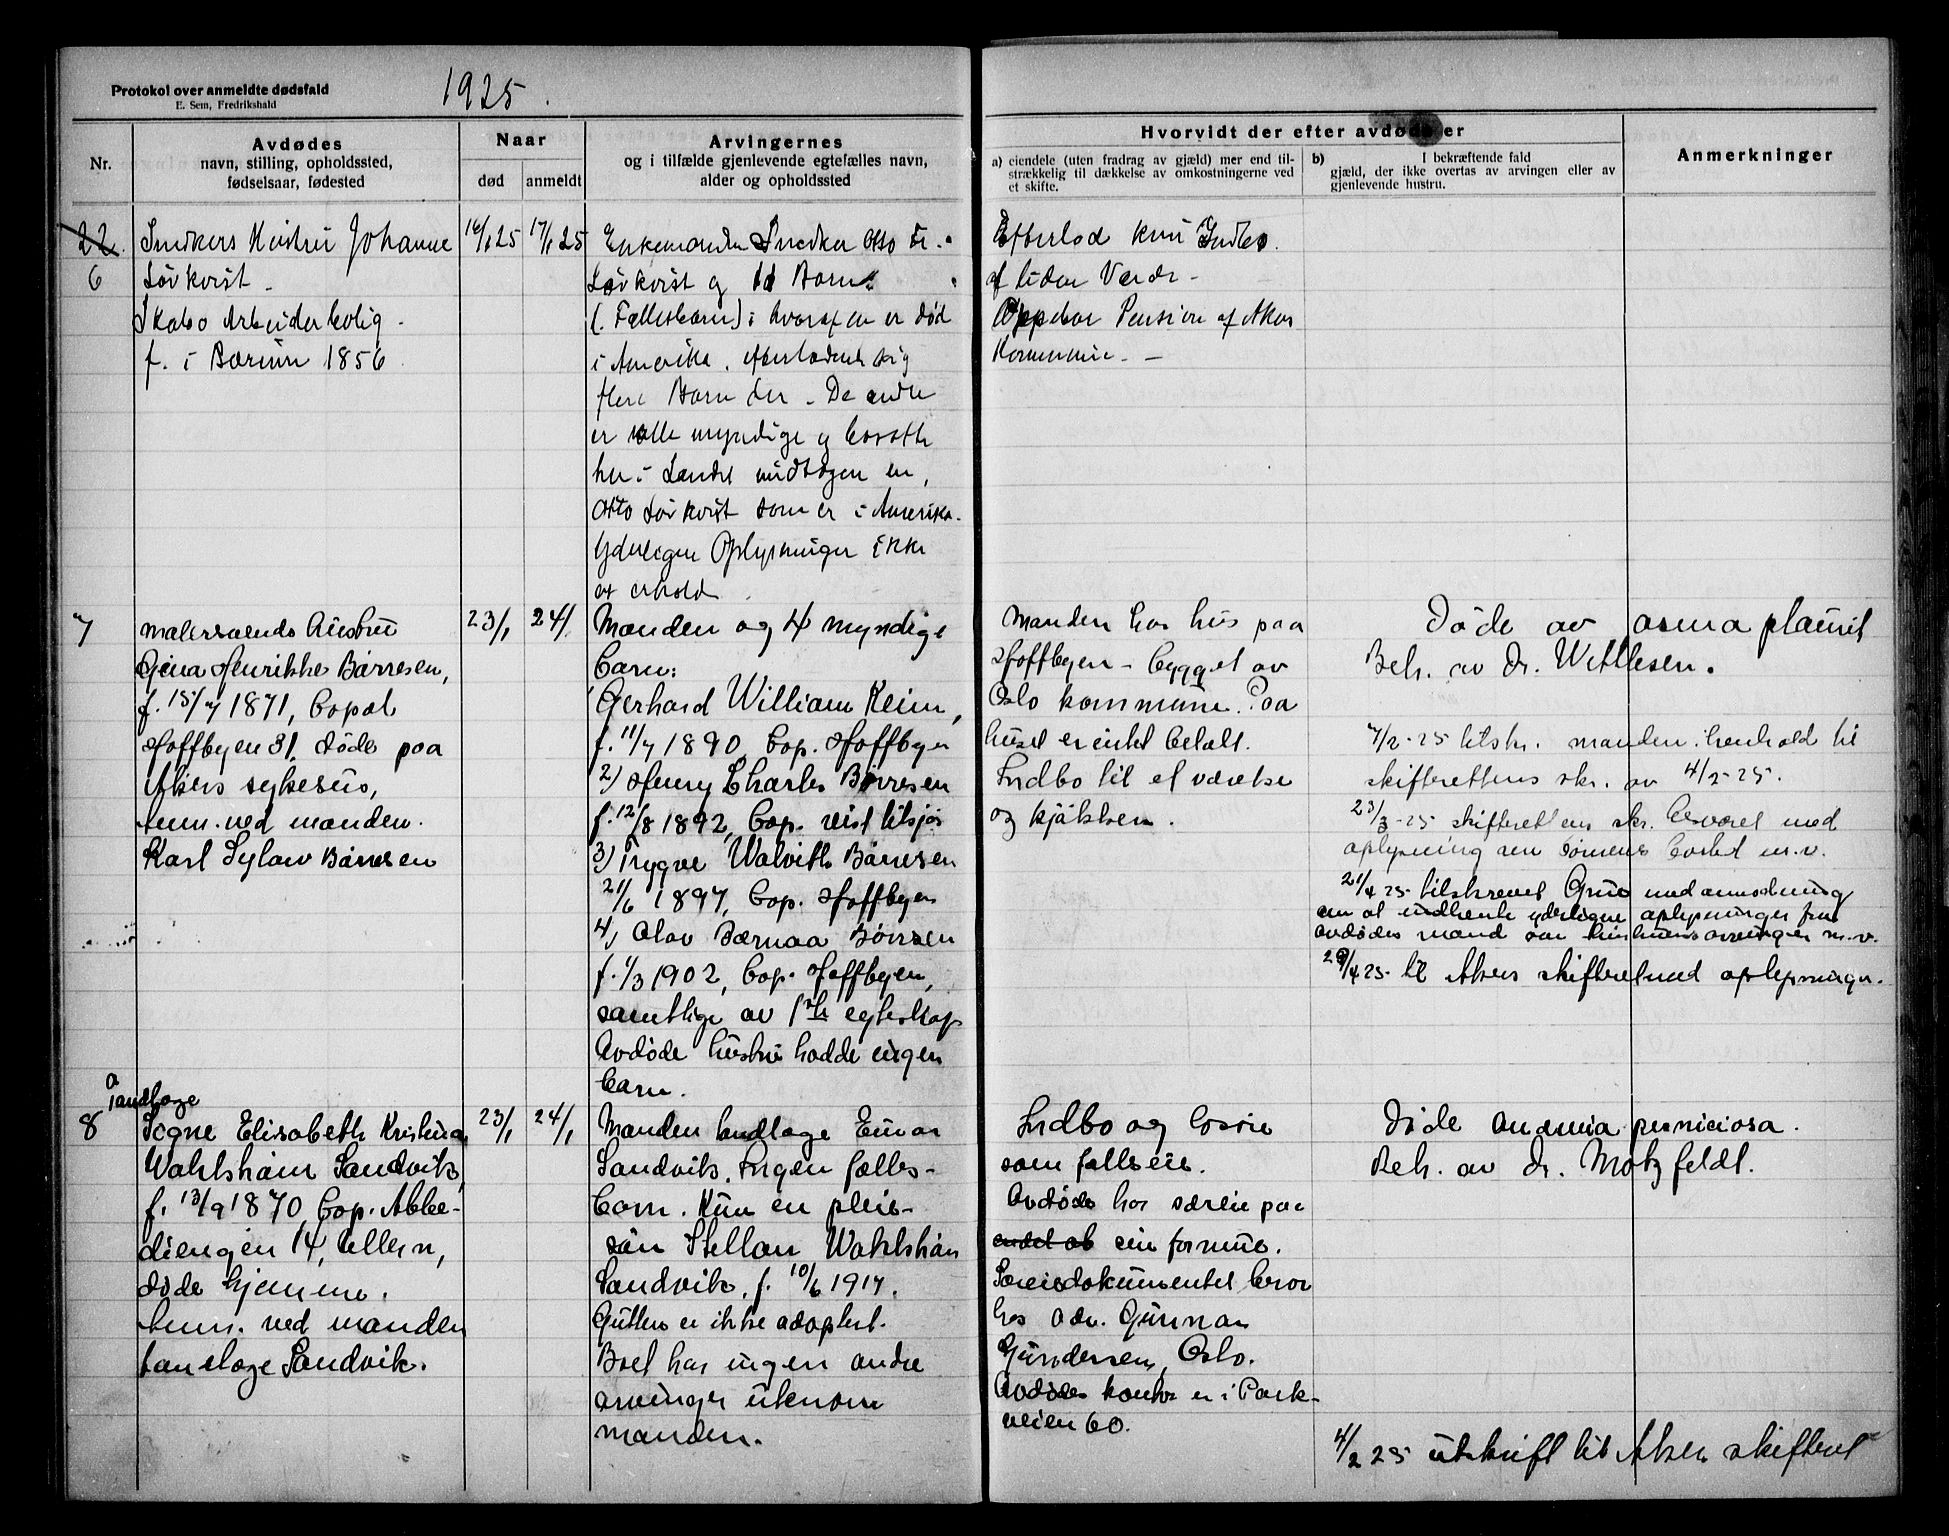 Protokol over anmeldte dødsfald
E. Sem, Fredrikshald
1925.
Nr.
Avdødes
navn, stilling, opholdssted,
fødselsaar, fødested
Naar
død
anmeldt
Arvingernes
og i tilfælde gjenlevende egtefælles navn,
alder og opholdssted
Hvorvidt der efter avdøde er
a) eiendele (uten fradrag av gjæld) mer end til-
strækkelig til dækkelse av omkostningerne ved
et skifte.
b) I bekræftende fald
gjæld, der ikke overtas av arvingen eller av
gjenlevende hustru.
Anmerkninger
22.
6
Snedkers Hustru Johanne
Lövkvist -
Skabo Arbeiderbolig -
f. i Bærum 1856
16/1 25
17/1 25
Enkemanden Snedker Otto Fr.
Lövkvist og 11 Børn
(Fællesbarn) i hvoraf en er død
i Amerika, efterladende sig
flere Børn der - De andre
er alle myndige og bosatte
her i Landet undtagen en,
Otto Lövkvist som er i Amerika.
Yderligere Oplysninger ikke
at erholde
Efterlod kun Indbo
af liden Værdi -
Oppebar Pension af Aker
Kommune -
7
malersvends Hustru
Gina Henrikke Börresen,
f. 15/7 1871, bopæl
Hoffbyen 31, døde paa
Akers sykehus,
anm. ved manden
Karl Sylow Börresen
23/1
24/1
Manden og 4 myndige
barn:
Gerhard William Keim,
f. 11/7 1890, bop. Hoffbyen
2) Henry Charles Börresen
f. 12/8 1892, bop. vist tilsjøs
3) Trygve Walvith Börresen
21/6 1897, bop. Hoffbyen
4) Olav Bernaa Börresen
f. 1/3 1902, bop. Hoffbyen,
samtlige av 1ste egteskap
Avdøde hustru hadde ingen
barn.
Manden har hus paa
Hoffbyen - bygget av
Oslo kommune. Paa
huset er intet betalt.
Indbo til et værelse
og kjøkken.
Døde av
Beh. av dr. Willesen.
4/2-25 tilskr. manden i henhold til
skifterettens skr. av 4/2-25.
23/3-25 skifterettens skr. besvaret med
oplysning om sønnens bosted m.v.
21/4 25 tilskrevet Grue med anmodning
om at indhente yderligere oplysninger fra
avdødes mand om hustruens arvinger m.v.
29/4 25 til Akers skifteret med oplysninger.
8
a
Tandlæge
Signe Elisabeth Kristina
Wahlshäm Sandvik,
f. 13/9 1870 bop. Abbe-
diengen 14, Ullern,
døde hjemme.
Anm. ved manden
tandlæge Sandvik.
23/1
24/1
Manden tandlæge Einar
Sandvik. Ingen fælles-
barn. Kun en pleie-
sön Stellan Wahlshäm
Sandvik, f. 10/6 1917.
Gutten er ikke adoptert.
Boet har ingen andre
arvinger utenom
manden.
Indbo og løsøre
som felleseie.
Avdøde har særeie paa
endel ab sin formue.
Særeiedokumentet beror
hos adv. Gunnar
Gundersen, Oslo.
Avdødes kontor er i Park-
veien 60.
Døde anæmia perniciosa.
Beh. av dr. Motzfeldt.
4/2 25 utskrift til Aker skifteret